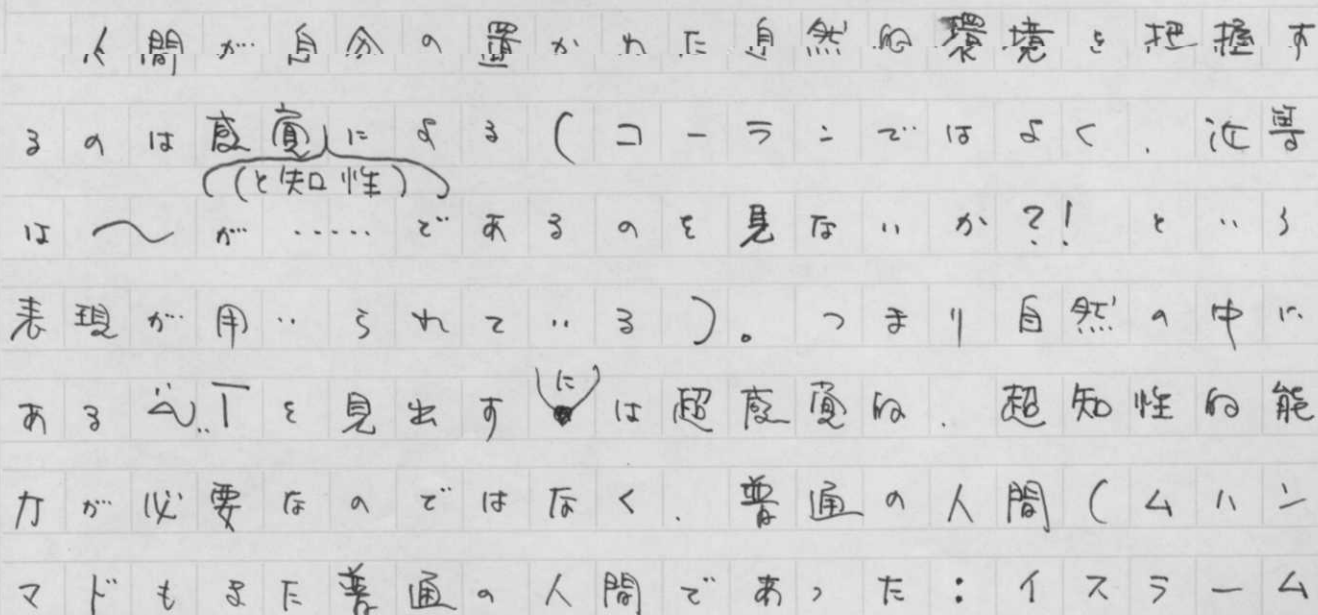 人間が自分の置かれた自然的環境を把握す
るのは感覚(と知性)による(コーランではよく、汝等
は〜が……であるのを見ないか?!という
表現が用いられている)。つまり自然の中に
あるを見出す(に)は超感覚的、超知性的能
力が必要なのではなく、普通の人間(ムハン
マドもまた普通の人間であった:イスラーム